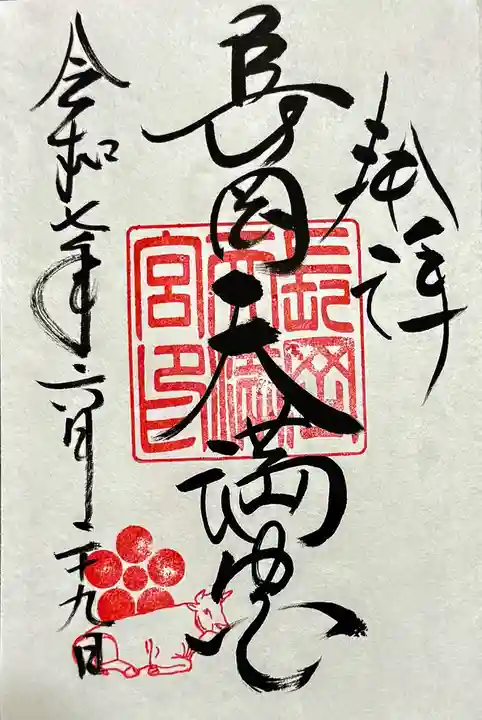 奉拝
長岡天満宮
長岡
天満
宮印
令和七年六月二十九日